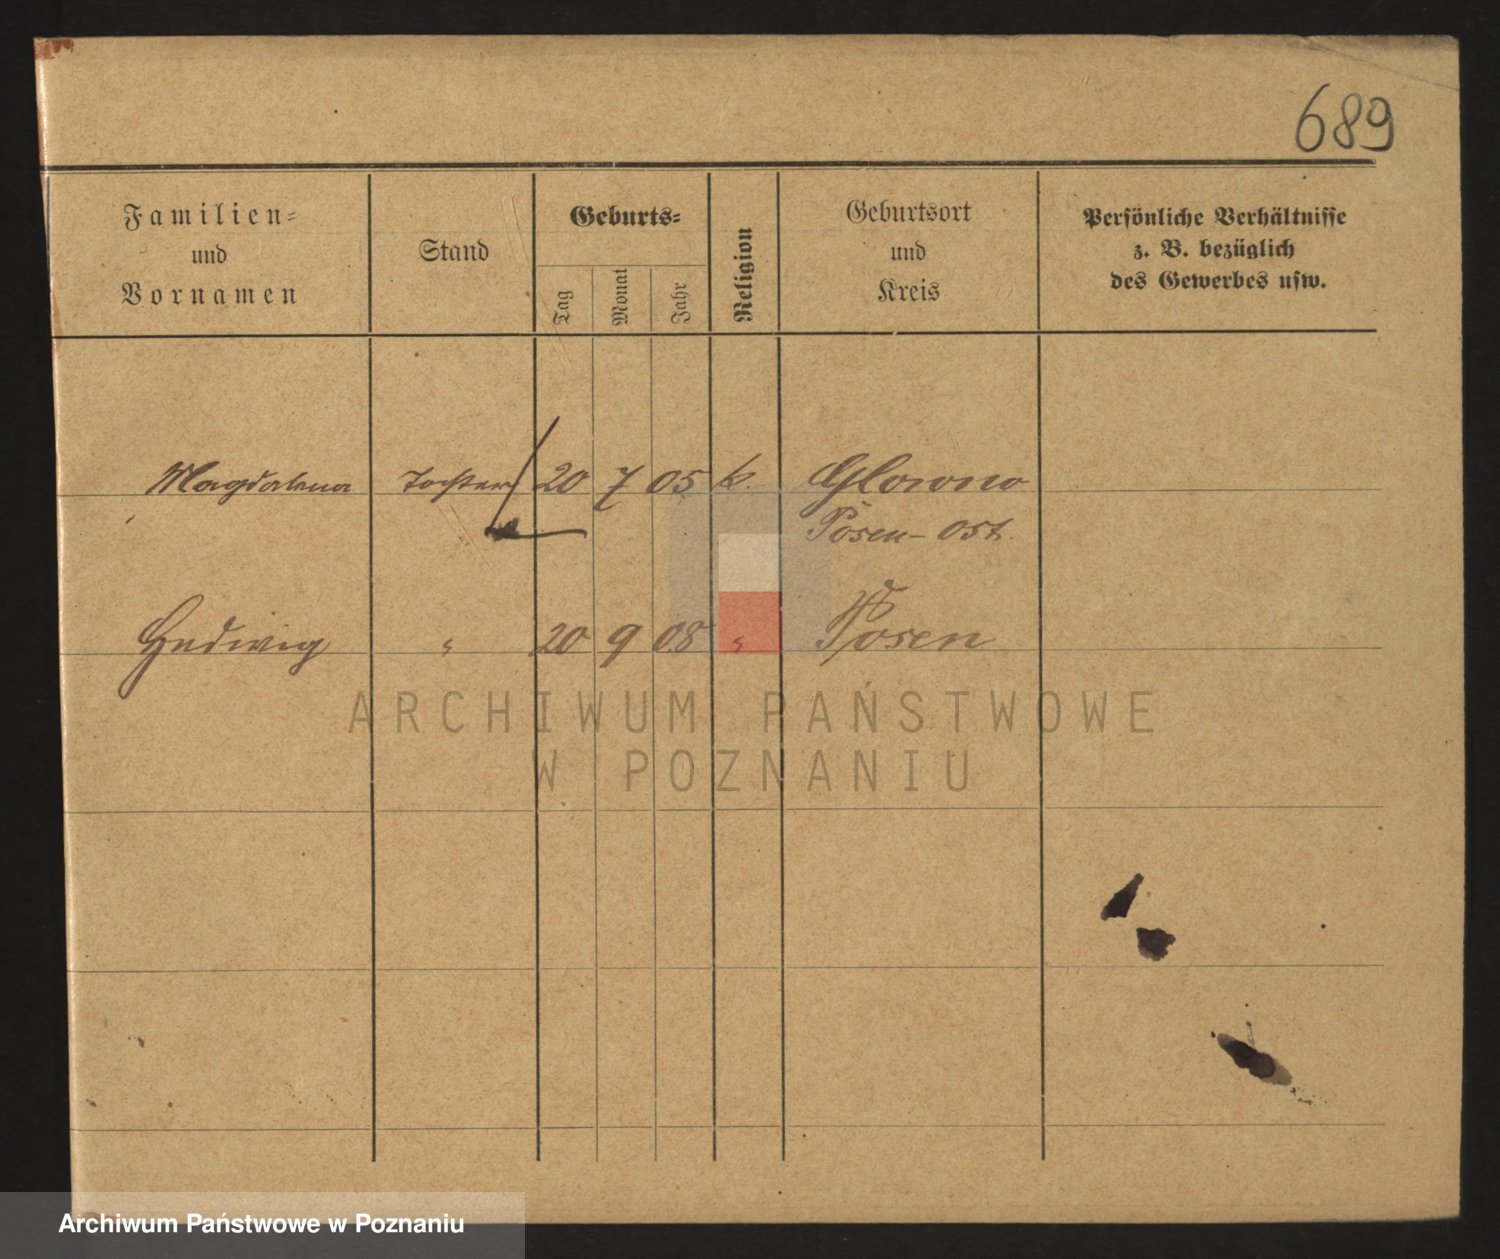 689
Familien=
und
Vornamen
Stand
Geburts=
Tag
Monat
Jahr
Religion
Geburtsort
und
Kreis
Persönliche Verhältnisse
z. B. bezüglich
des Gewerbes usw.
Magdalena Tochter 20 7 05 k. Glowno
Posen-Ost.
Hedwig " 20 9 08 " Posen
ARCHIWUM PAŃSTWOWE
W POZNANIU
Archiwum Państwowe w Poznaniu